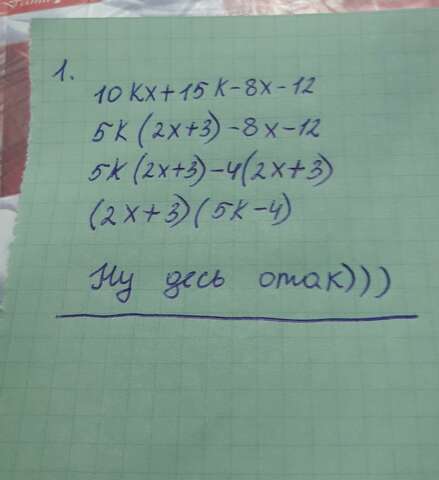 1.
10kx+15k-8x-12
5k(2x+3)-8x-12
5k(2x+3)-4(2x+3)
(2x+3)(5k-4)
Ну десь отак)))